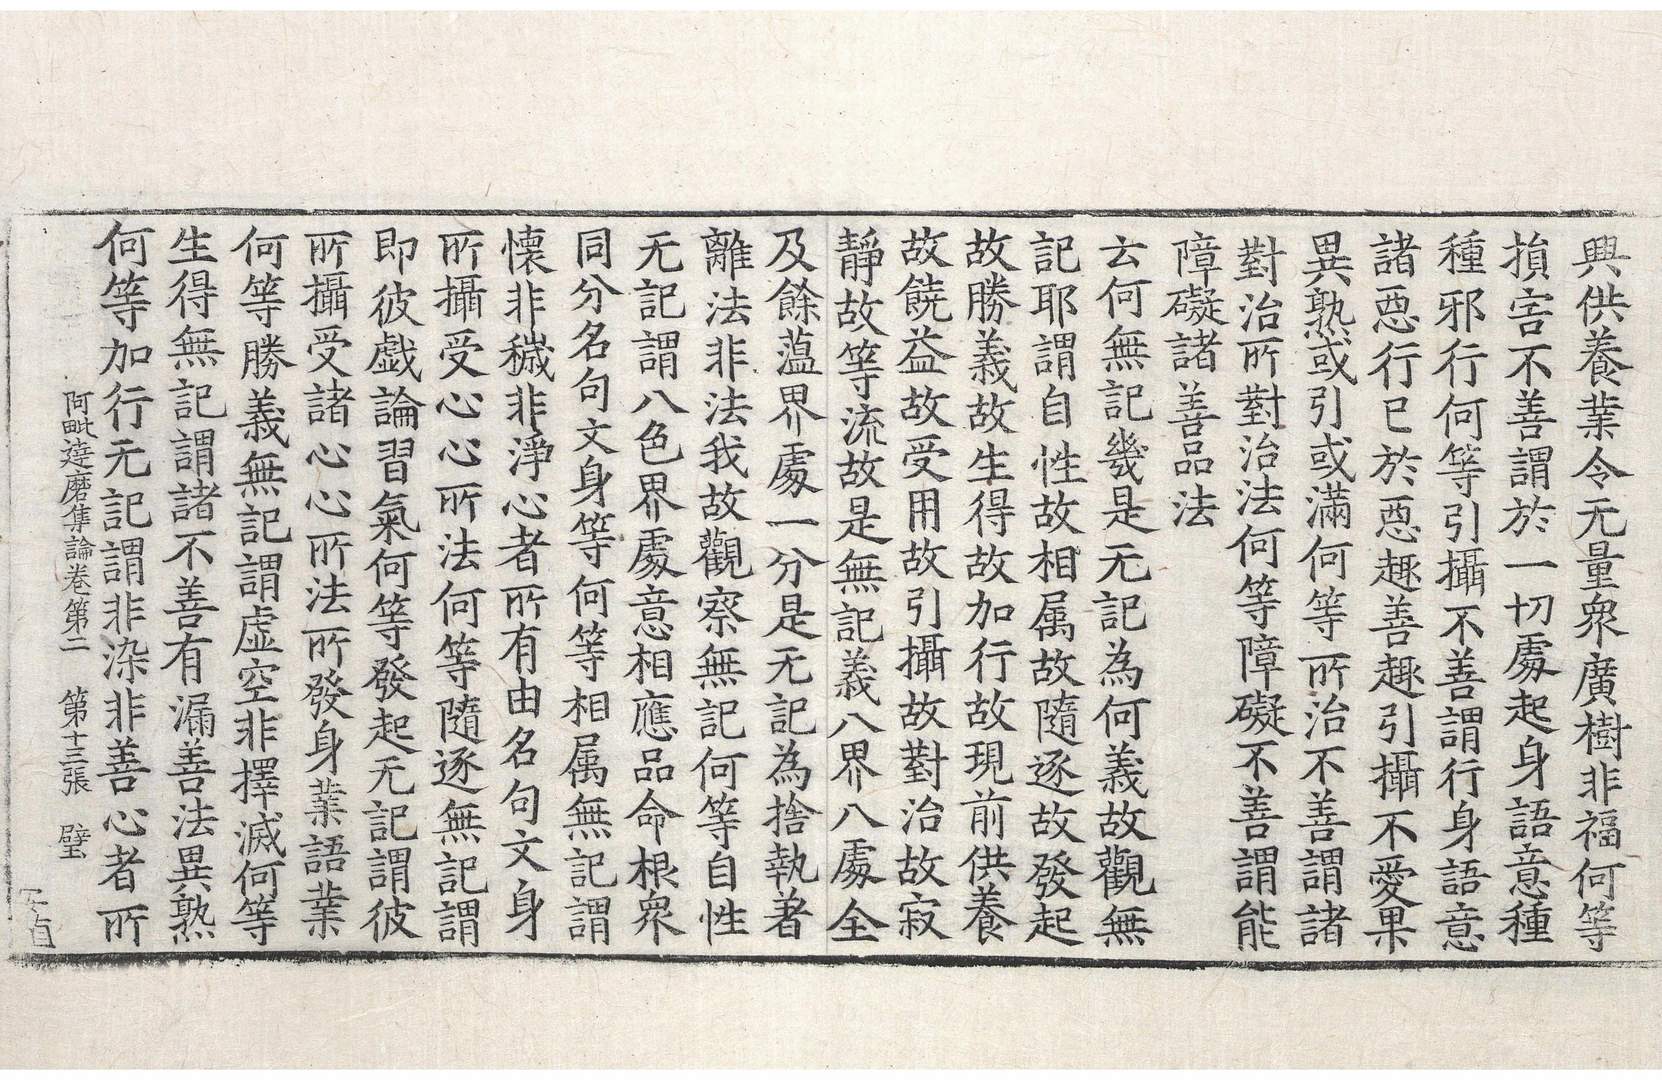 興供養業令无量衆廣樹非福何等
損害不善謂於一切處起身語意種
種邪行何等引攝不善謂行身語意
諸惡行已於惡趣善趣引攝不愛果
異熟或引或滿何等所治不善謂諸
對治所對治法何等障礙不善謂能
障礙諸善品法
云何無記幾是无記為何義故觀無
記耶謂自性故相属故隨逐故發起
故勝義故生得故加行故現前供養
故饒益故受用故引攝故對治故寂
靜故等流故是無記義八界八處全
及餘蘊界處一分是无記為捨執著
離法非法我故觀察無記何等自性
无記謂八色界處意相應品命根衆
同分名句文身等何等相属無記謂
懷非穢非淨心者所有由名句文身
所攝受心心所法何等隨逐無記謂
即彼戱論習氣何等發起无記謂彼
所攝受諸心心所法所發身業語業
何等勝義無記謂虛空非擇滅何等
生得無記謂諸不善有漏善法異熟
何等加行无記謂非染非善心者所
阿毗達磨集論卷第二 第十三張 壁